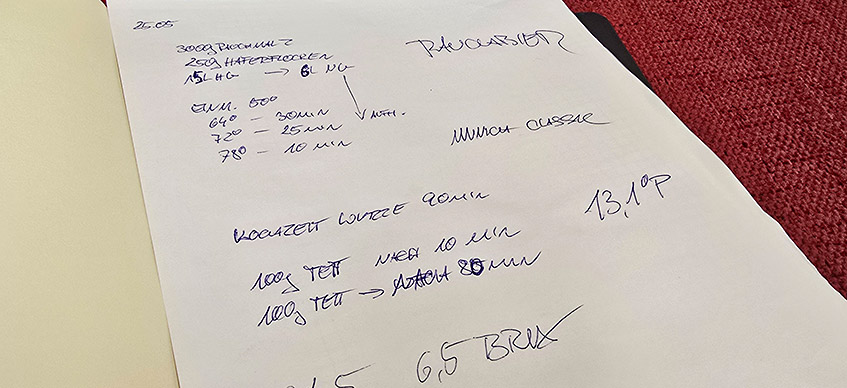 25.05
300g RAUCHMALZ
250g HAFERFLOCKEN
RAUCHBIER
15L HG → 6L NG
EINM. 50°
64° – 30MIN
72° – 25 MIN
78° – 10 MIN
MUNICH CLASSIC
KOCHZEIT WÜRZE 90MIN
13,1°P
100g TETT NACH 10 MIN
100g TETT → NACH 80MIN
6,5 BRIX